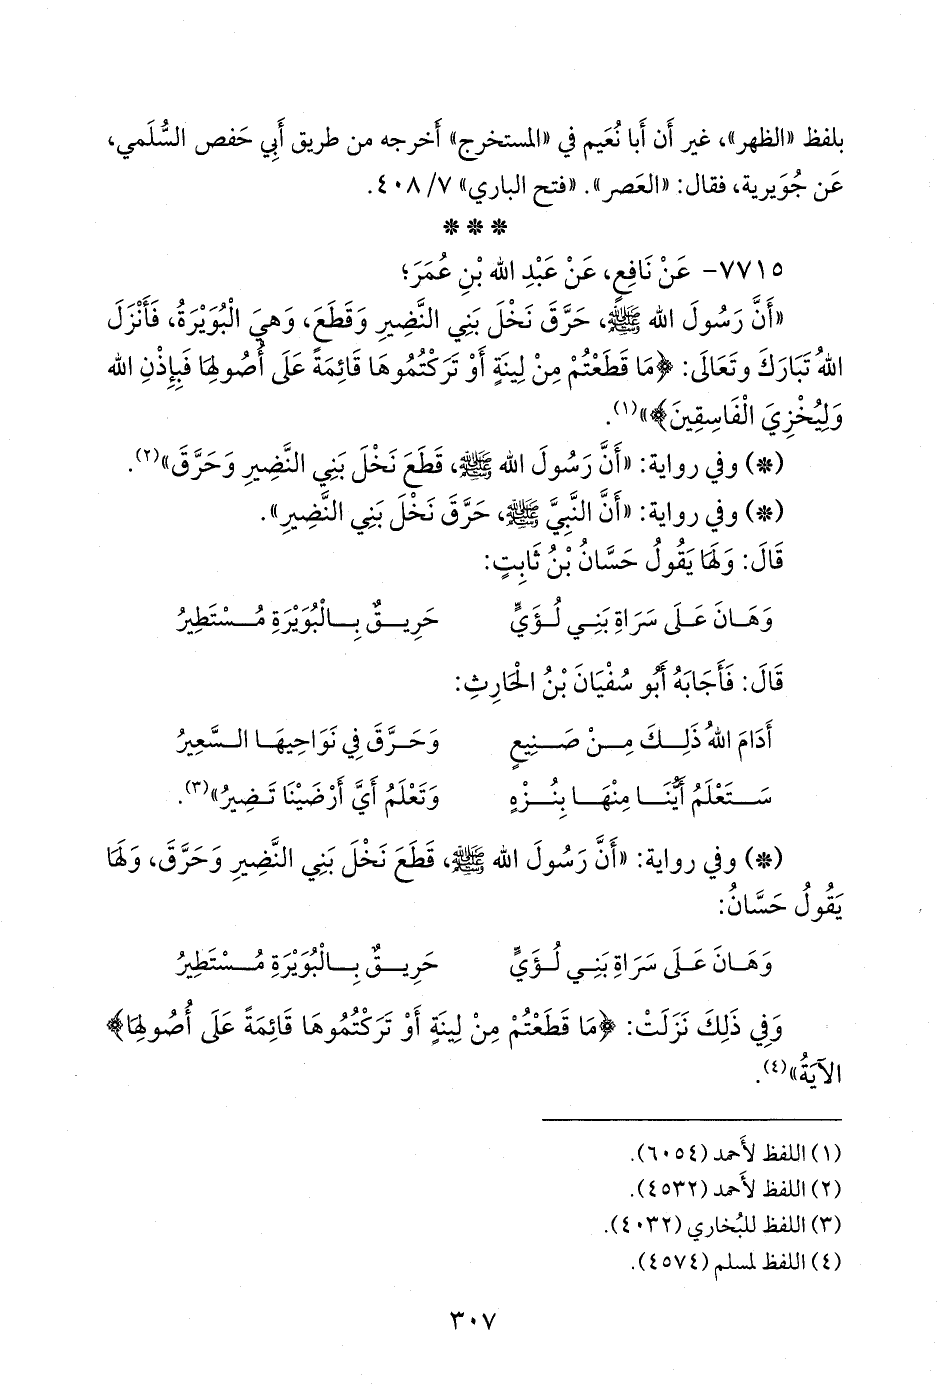 بلفظ «الظهر»، غير أَن أَبا نُعَيم في «المستخرج» أَخرجه من طريق أَبِي حَفص السُّلَمي،
عَن جُوَيرية، فقال: «العَصر». «فتح الباري» ٧/ ٤٠٨.
* * *
٧٧١٥- عَنْ نَافِعٍ، عَنْ عَبْدِ الله بْنِ عُمَرَ؛
«أَنَّ رَسُولَ الله ﷺ، حَرَّقَ نَخْلَ بَنِي النَّضِيرِ وَقَطَعَ، وَهِيَ الْبُوَيْرَةُ، فَأَنْزَلَ
اللهُ تَبَارَكَ وتَعَالَى: ﴿مَا قَطَعْتُمْ مِنْ لِينَةٍ أَوْ تَرَكْتُمُوهَا قَائِمَةً عَلَى أُصُولِهَا فَبِإِذْنِ الله
وَلِيُخْزِيَ الْفَاسِقِينَ﴾»(١).
(*) وفي رواية: «أَنَّ رَسُولَ الله ﷺ، قَطَعَ نَخْلَ بَنِي النَّضِيرِ وَحَرَّقَ»(٢).
(*) وفي رواية: «أَنَّ النَّبِيَّ ﷺ، حَرَّقَ نَخْلَ بَنِي النَّضِيرِ».
قَالَ: وَلَهَا يَقُولُ حَسَّانُ بْنُ ثَابِتٍ:
وَهَـانَ عَـلَى سَرَاةِ بَنِـي لُـؤَيٍّ حَرِيـقٌ بِـالْبُوَيْرَةِ مُـسْتَطِيرُ
قَالَ: فَأَجَابَهُ أَبُو سُفْيَانَ بْنُ الْحَارِثِ:
أَدَامَ اللهُ ذَلِـكَ مِـنْ صَـنِيعٍ وَحَـرَّقَ فِي نَوَاحِيهَـا الـسَّعِيرُ
سَـتَعْلَمُ أَيُّنَـا مِنْهَـا بِنُـزْهٍ وَتَعْلَمُ أَيَّ أَرْضَيْنَا تَـضِيرُ»(٣).
(*) وفي رواية: «أَنَّ رَسُولَ الله ﷺ، قَطَعَ نَخْلَ بَنِي النَّضِيرِ وَحَرَّقَ، وَلَهَا
يَقُولُ حَسَّانُ:
وَهَـانَ عَـلَى سَرَاةِ بَنِـي لُـؤَيٍّ حَرِيـقٌ بِـالْبُوَيْرَةِ مُـسْتَطِيرُ
وَفِي ذَلِكَ نَزَلَتْ: ﴿مَا قَطَعْتُمْ مِنْ لِينَةٍ أَوْ تَرَكْتُمُوهَا قَائِمَةً عَلَى أُصُولِهَا﴾
الآيَةُ»(٤).
(١) اللفظ لأَحمد (٦٠٥٤).
(٢) اللفظ لأَحمد (٤٥٣٢).
(٣) اللفظ للبُخاري (٤٠٣٢).
(٤) اللفظ لمسلم (٤٥٧٤).
٣٠٧